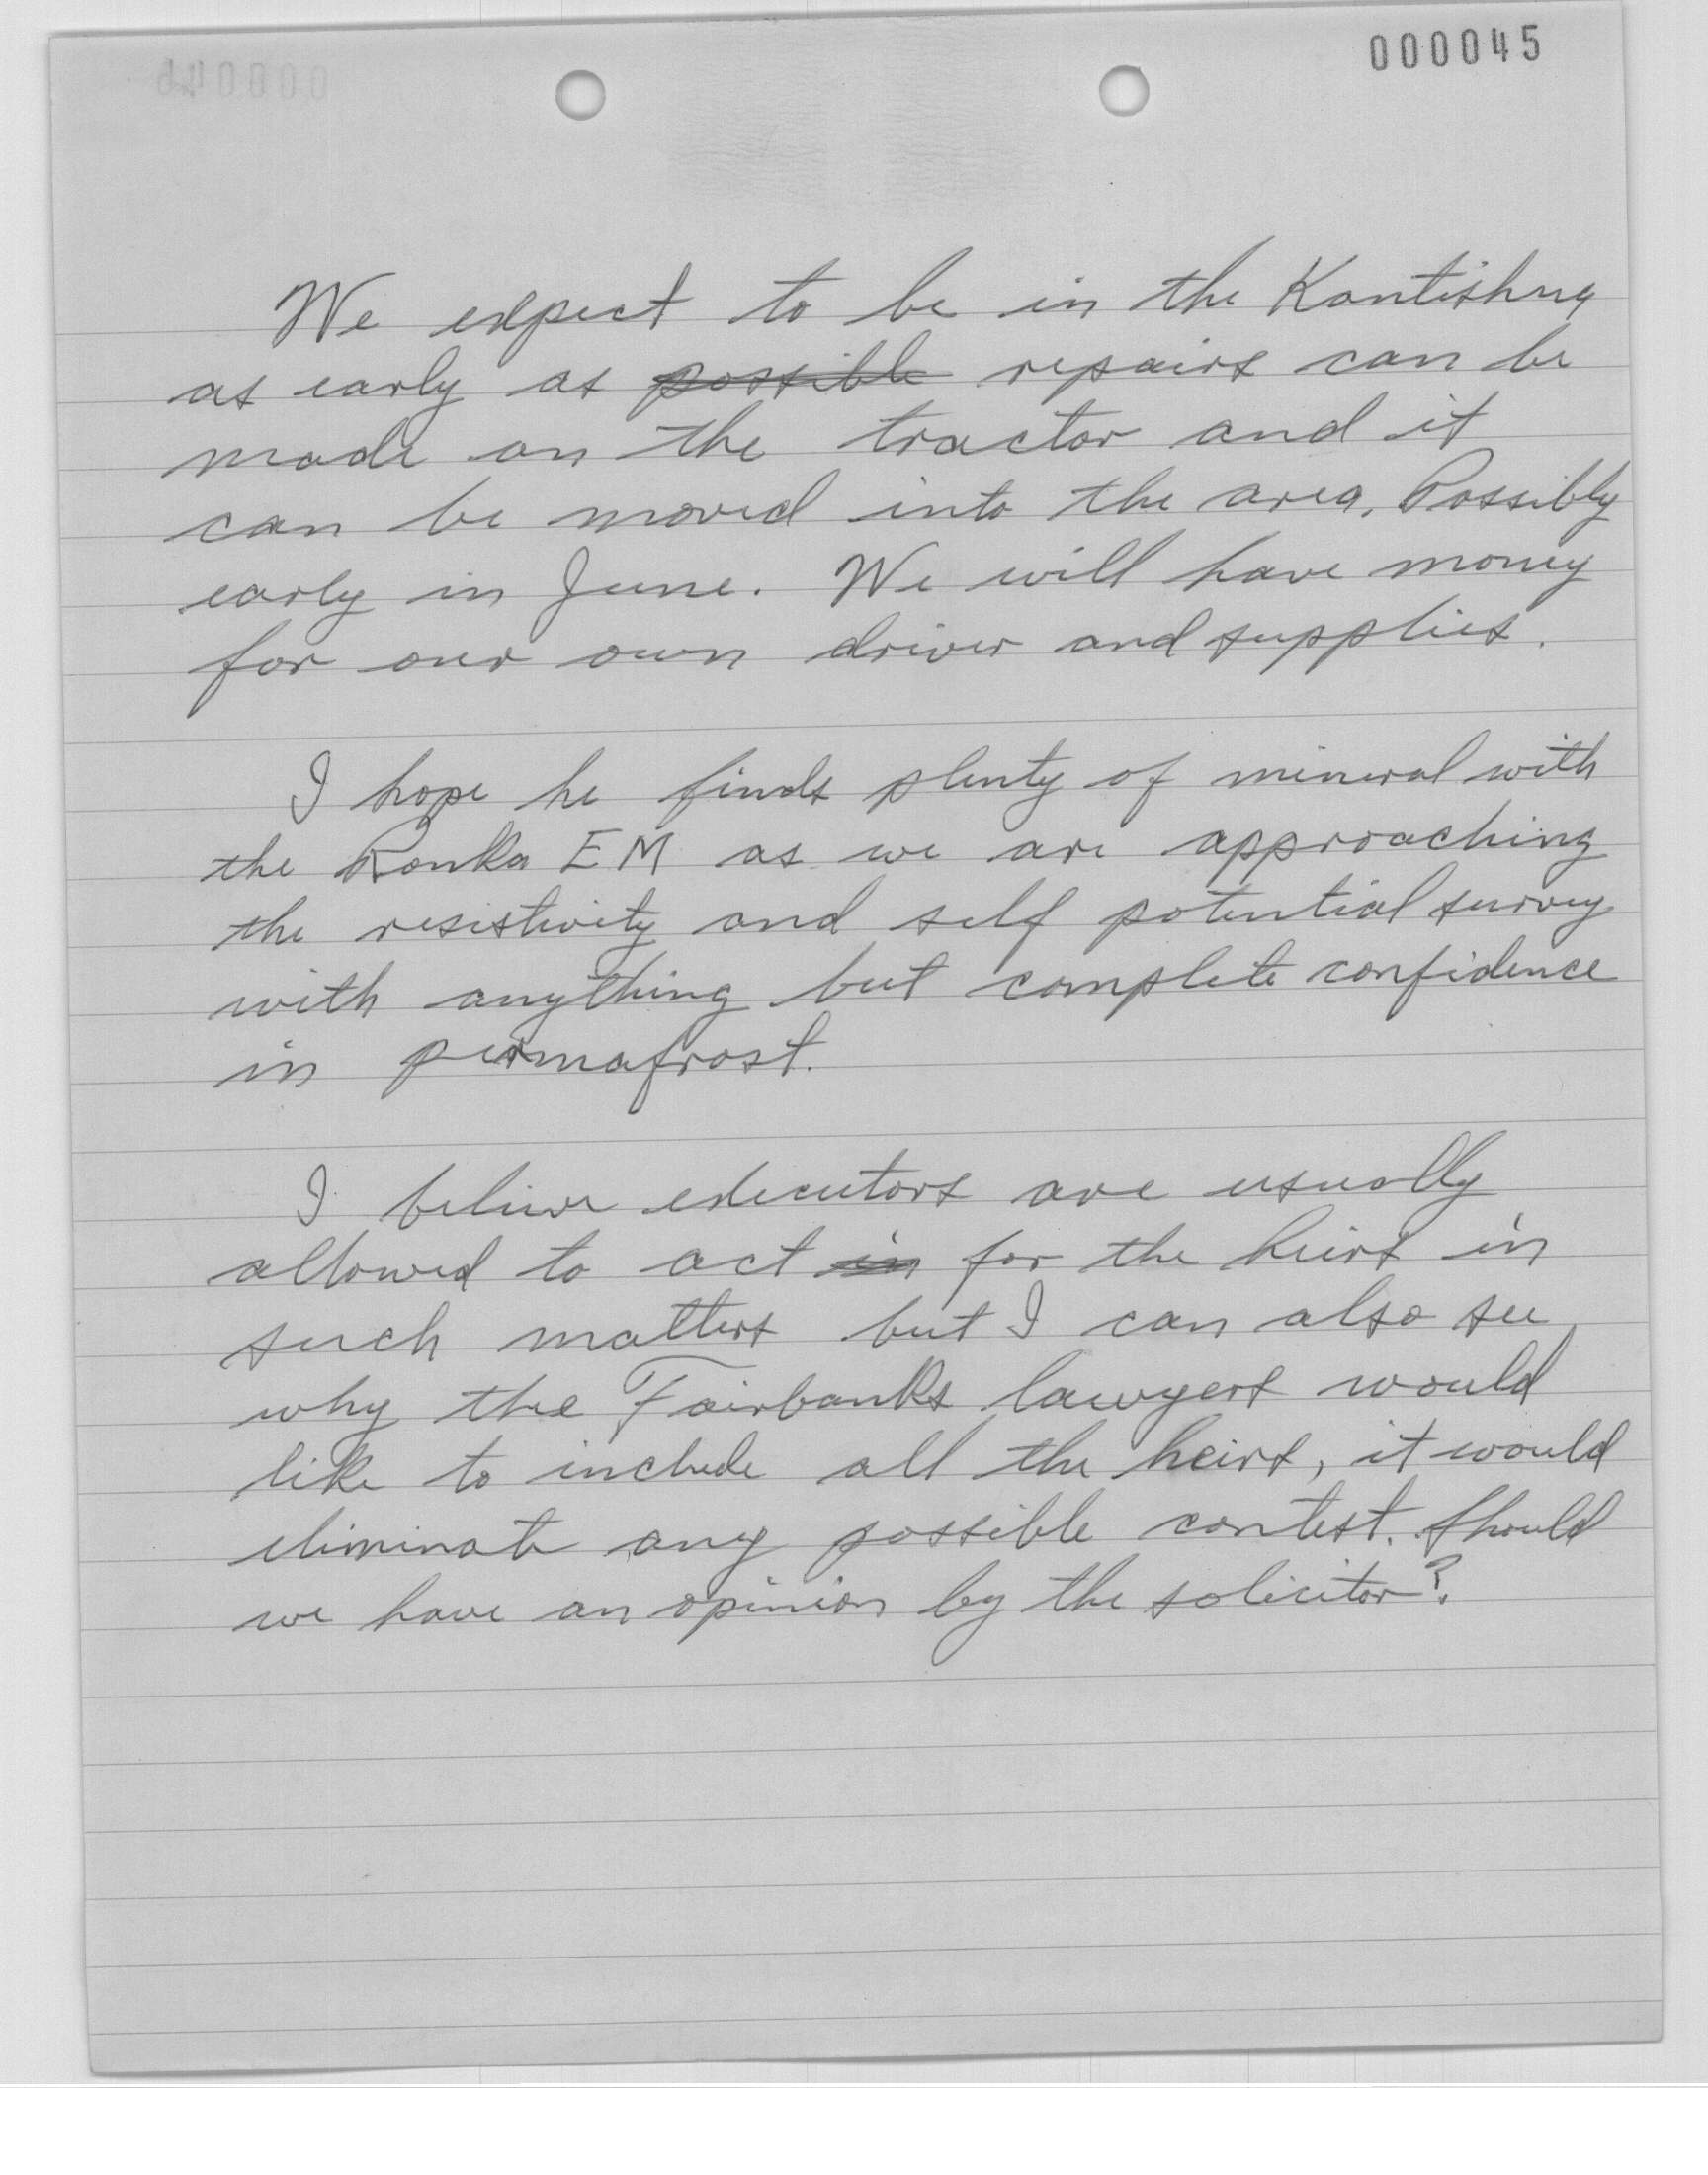 000045
We expect to be in the Kantishna
as early as possible repairs can be
made on the tractor and it
can be moved into the area. Possibly
early in June. We will have money
for our own driver and supplies.
I hope he finds plenty of mineral with
the Ronka EM as we are approaching
the resistivity and self potential survey
with anything but complete confidence
in permafrost.
I believe executors are usually
allowed to act in for the heirs in
such matters but I can also see
why the Fairbanks lawyers would
like to include all the heirs, it would
eliminate any possible contest. Should
we have an opinion by the solicitor?